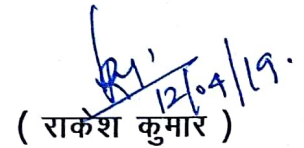 12/04/19.
( राकेश कुमार )